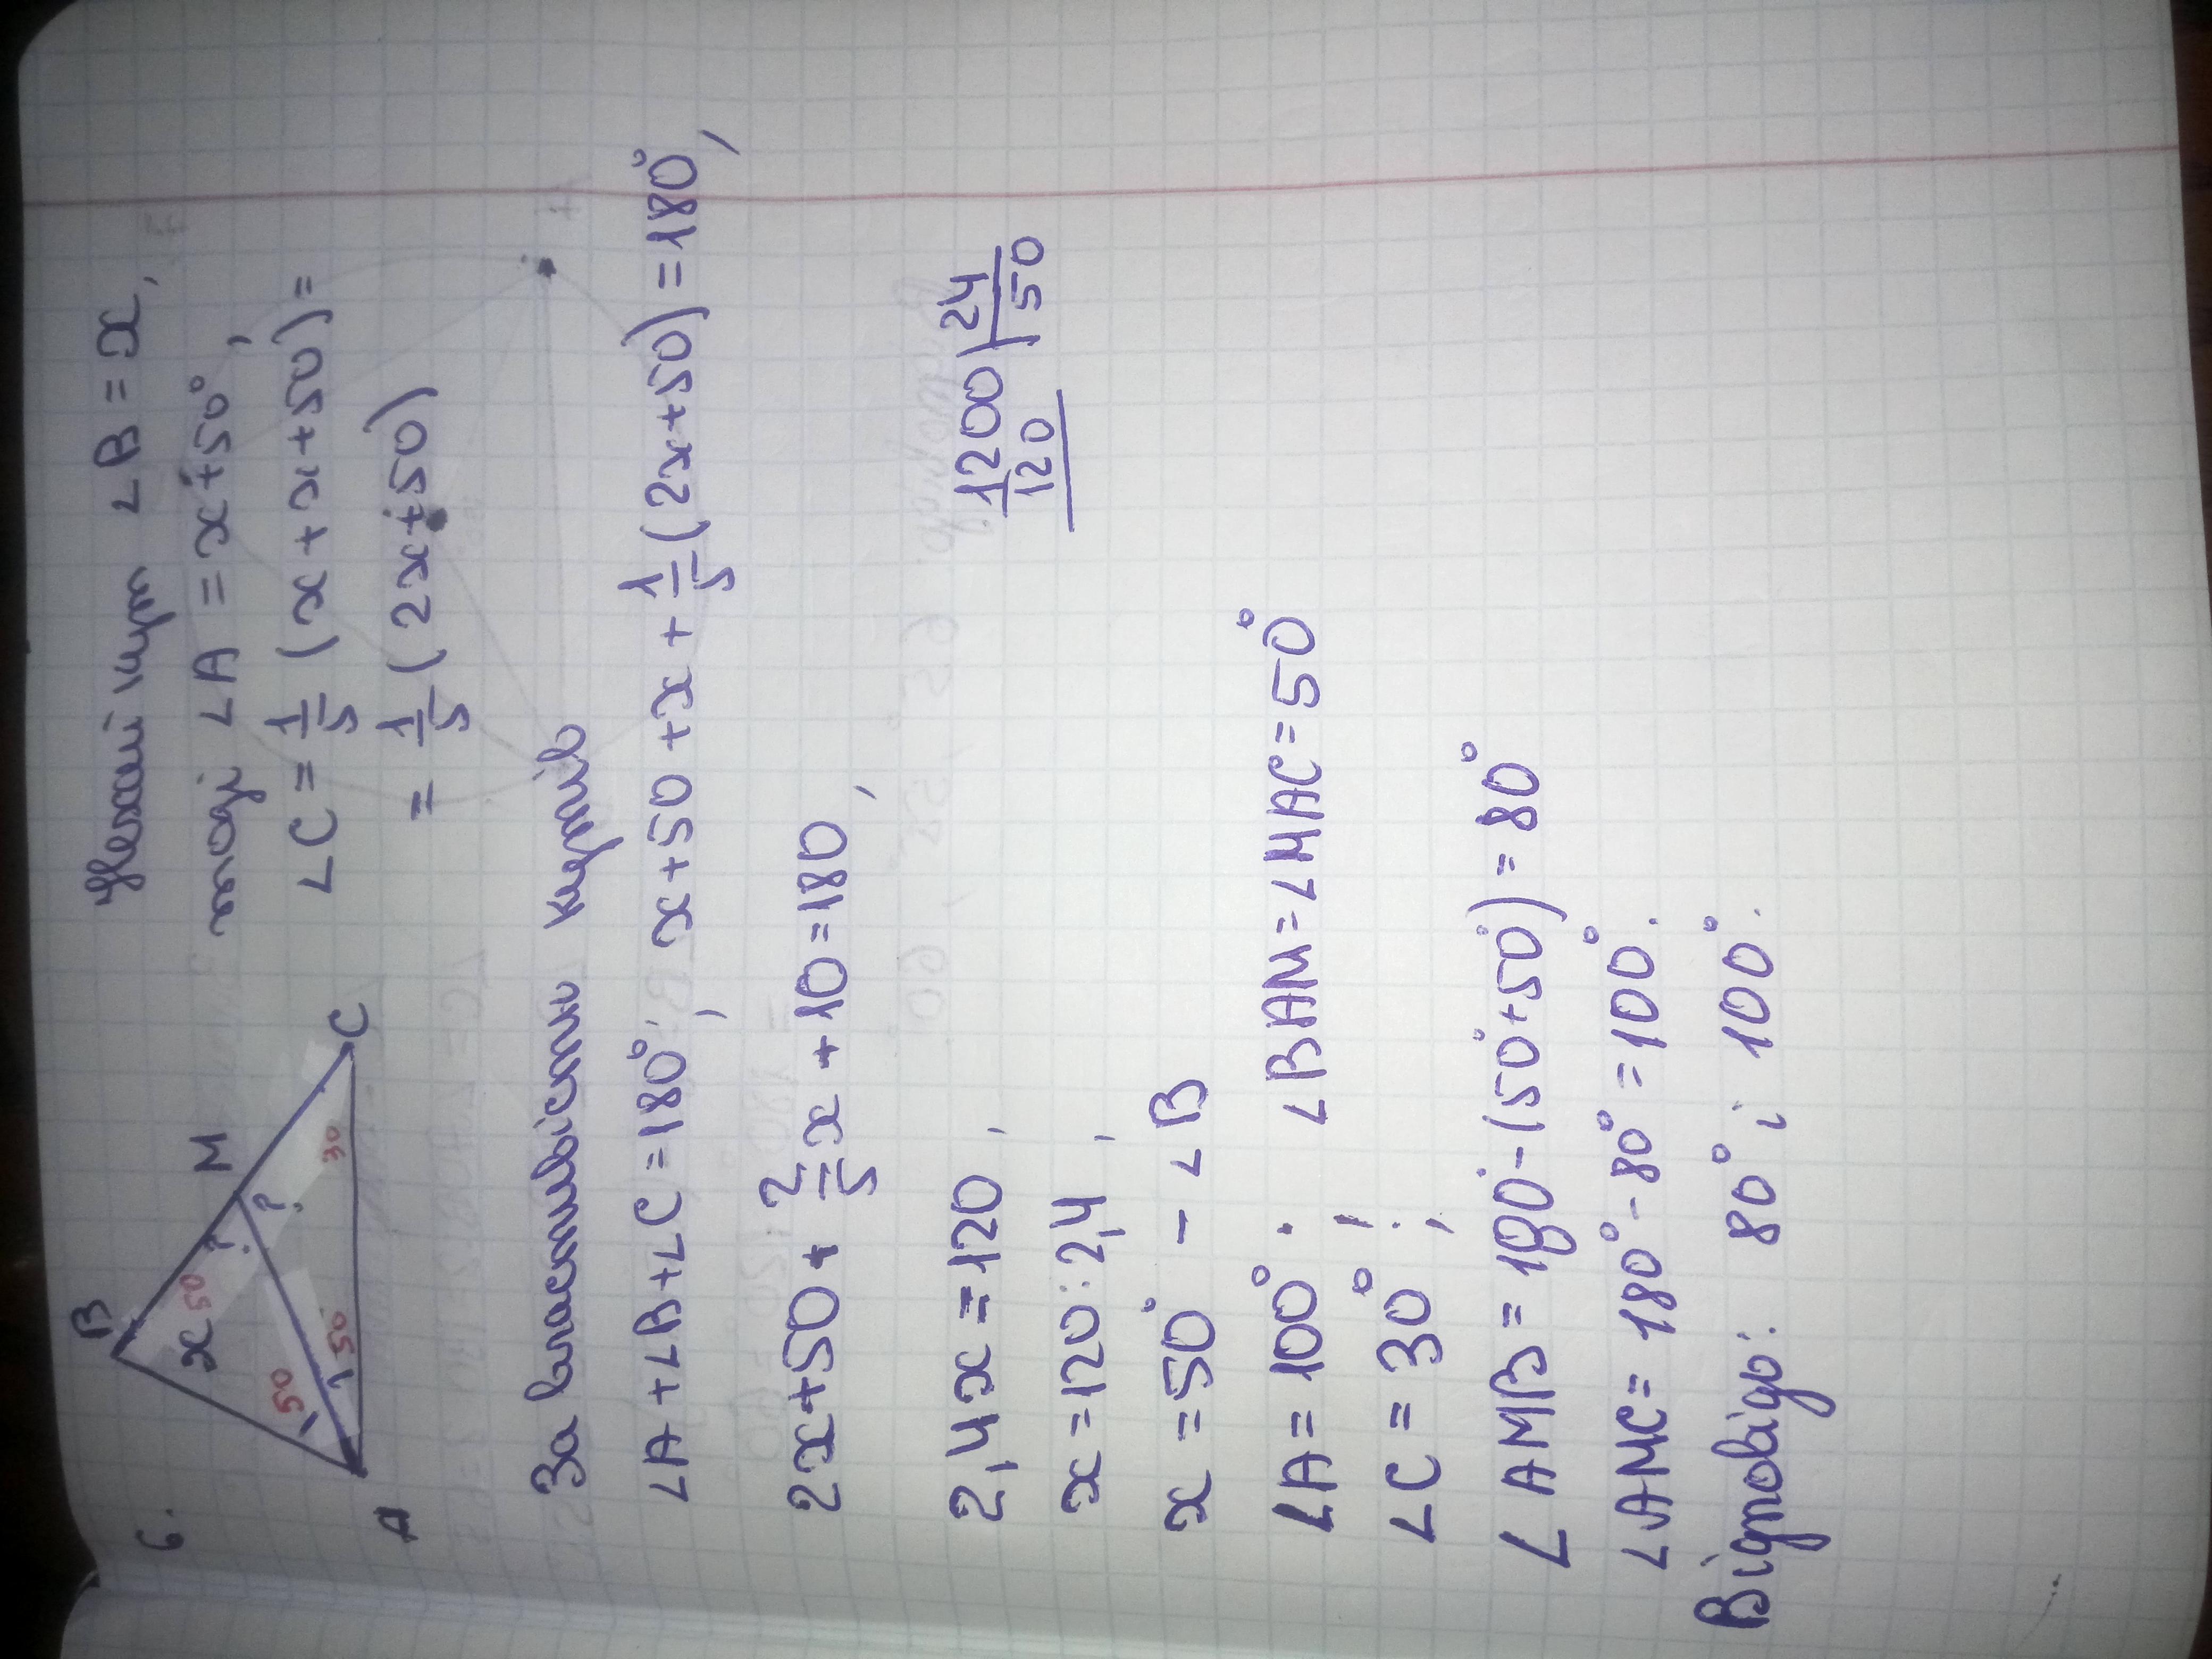 6.
B
M
x 50
? ?
50
50
30
A
C
Нехай кут ∠B = x,
тоді ∠A = x+50°,
∠C = 1/5 (x+x+50) =
= 1/5 (2x+50)
За властивістю кутів
∠A+∠B+∠C=180°; x+50+x+1/5(2x+50)=180°,
2x+50+2/5x+10=180,
2,4x=120,
1200 | 24
120 50
x=120:2,4,
x=50° - ∠B
∠A=100°; ∠BAM=∠MAC=50°
∠C=30°;
∠AMB=180°-(50°+50°)=80°
∠AMC=180°-80°=100°.
Відповідь: 80° і 100°.